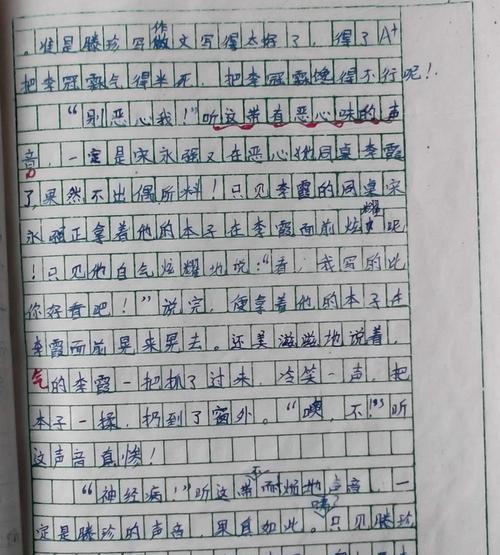 。准是滕珍写作文写得太好了，得了A+
把李冠霖气得半死，把李冠霖馋得不行呢！
“别恶心我！”听这带有恶心味的声
音，一定是宋永强又在恶心他同桌李霞
了，果然不出偶所料！只见李霞的同桌宋
永强正拿着他的本子在李霞面前炫耀呢
！只见他自气炫耀地说：“看，我写的比
你好看吧！”说完，便拿着他的本子在
李霞面前晃来晃去。还美滋滋地说着，
气的李霞一把抓了过来，冷笑一声，把
本子一揉，扔到了窗外。“噢，不！”听
这声音真惨！
“神经病！”听这带不耐烦地声音，一
定是滕珍的声音，果真如此。只见滕珍